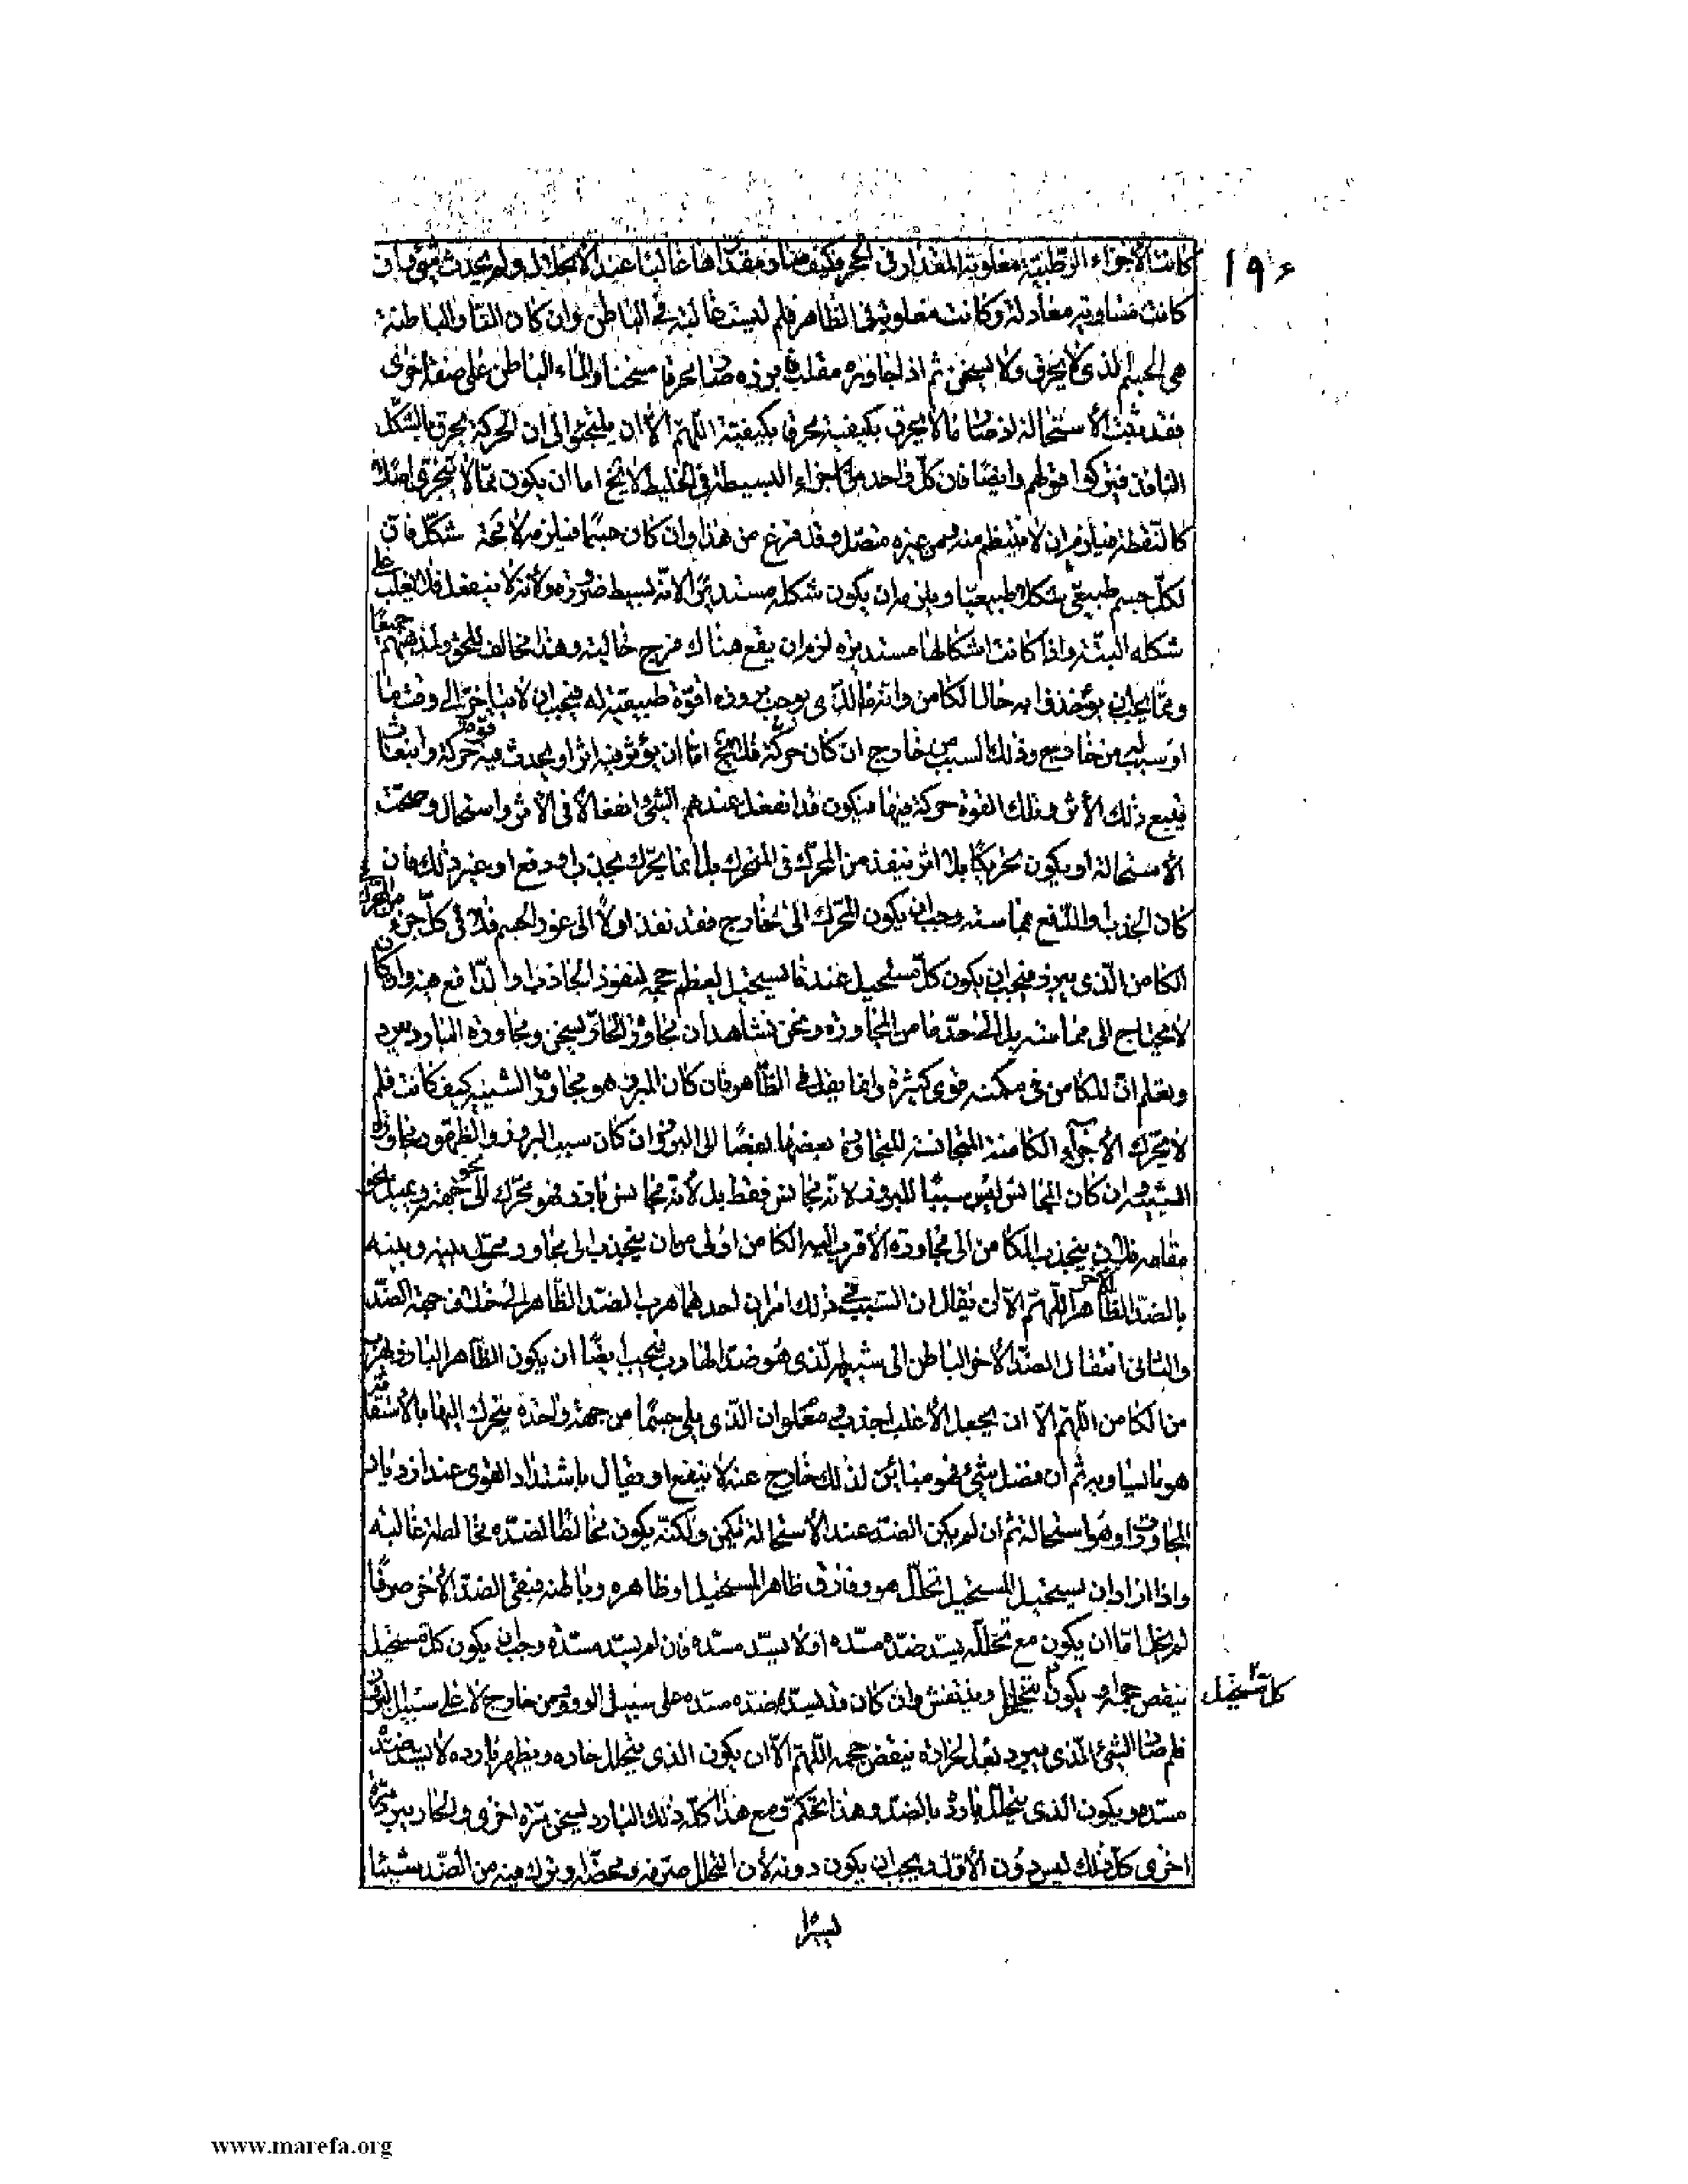 ١٩٦
كانت الأجزاء الرطبة مغلوبة المقدار في الحجم فكيف صار مقدارها غالبا عند الانحلال ولم يحدث شيء وان
كانت متساوية معادلة وكانت مغلوبة في الظاهر فلم ليست غالبة في الباطن وان كان النار الباطنة
هي الجسم الذي لا يحرق ولا يسخن ثم اذا جاوزه مقلب بروزه صار محرقا مسخنا والماء الباطن على صفة اخرى
فقد ثبت الأستحالة اذ صار ما لا يحرق بكيفيته محرقا بكيفيته اللهم الا ان يلتجئوا الى ان الحركة يحرق بالشكل
النافذ فيتركوا قولهم وايضا فان كل واحد من الأجزاء البسيطة في الخليط لا يخ اما ان يكون مما لا يتجزى اصلا
كالنقطة فيلزم ان لا ينتظم منه ومن غيره متصل وقد فرغ من هذا وان كان جسما فيلزمه لا محة شكل فان
لكل جسم طبيعي شكلا طبيعيا ويلزم ان يكون شكله مستديرا لانه بسيط ضرورة ولأنه لا ينفعل فلا يغلب على
شكله البتة واذا كانت اشكالها مستديرة لزم ان يقع هناك فرج خالية وهذا مخالف للحق ولمذهبهم جميعا
ومما يجب ان يؤاخذوا به حال الكامن وانه ما الذي يوجب بروزه اقوة طبيعية له فيجب ان لا يتأخر الى وقت ما
او سبب من خارج وذلك السبب من خارج ان كان حركة فلا يخ اما ان يؤثر فيه اثرا ويحدث فيه قوة حركة وانبعاث
فيتبع ذلك الأثر وتلك القوة حركة منها فيكون قد انفعل عندهم الشيء انفعالا في الأثر واستحال وصحت
الأستحالة او يكون تحريكا بلا اثر ينفذ من المحرك في المتحرك بل انما يحرك بجذب او دفع او غير ذلك فان
كان الجذب والدفع مماسة وجب ان يكون المحرك الى الخارج فقد نفذ اولا الى غور الجسم فلاقى كل جزء من المحرك
الكامن الذي يبرز فيجب ان يكون كل مستحيل عندما يستحيل يعظم حجمه لنفوذ الجاذب او الدافع فيه وان كان
لا يحتاج الى مماسة بل الى حد ما من المجاورة ونحن نشاهد ان مجاورة الحار يسخن ومجاورة البارد يبرد
ونعلم ان للكامن في مكمنه قوى كثيرة وانما يقل في الظاهر فان كان المبرز هو مجاورة الشبيه كيف كانت فلم
لا تحرك الأجزاء الكامنة المتجانسة المتجاورة بعضها بعضا الى البروز وان كان سبب البروز والظهور مجاورة
الشبيه وان كان المجانس ليس سببا للبروز لانه مجانس فقط بل لأنه مجانس بارز فهو يحرك الى نحو جهته ويميل نحو
مقامه فلان ينجذب الكامن الى مجاورة الأقرب اليه الكامن اولى من ان ينجذب الى مجاور محول بينه وبينه
بالضد الظاهر الآخر اللهم الا ان يقال ان السبب في ذلك امران احدهما هرب الضد الظاهر الى خلاف جهة الضد
والثاني انتقال الضد الأخر الباطن الى شبيهه الذي هو ضد الهارب فيجب ايضا ان يكون الظاهر البارز يهرب
من الكامن اللهم الا ان يجعل الأغلب اجذب ومعلوم ان الذي يلي جسما من جهة واحدة يتحرك اليها بالأستقا
هو ما يساويه ثم ان فضل شيء فهو مباين لذلك خارج عنه لا ينفع او يقال باشتداد القوى عند ازدياد
المجاورات وهو استحالة ثم ان لم يكن الضد عند الأستحالة يكمن ولكنه يكون مخالطا لضده مخالطة غالبة
واذا اراد ان يستحيل المستحيل تحلل هو وفارق ظاهر المستحيل او ظاهره وباطنه فبقي الضد الأخر صرفا
لم يخل اما ان يكون مع تحلله يسد ضده مسده او لا يسد مسده فان لم يسد مسده وجب ان يكون كل مستحيل
ينقص حجمه او يكون كل مستحيل يتخلخل وينتفش وان كان قد يسد ضده مسده على سبيل الورود من خارج لا على سبيل البروز
فلم صار الشيء الذي يبرد بعد الحرارة ينقص حجمه اللهم الا ان يكون الذي يتحلل حاره ويظهر بارده لا يسد ضده
مسده ويكون الذي يتحلل بارده بالضد وهذا تحكم ومع هذا كله ذلك البارد يسخن مرة اخرى والحار يبرد مرة
اخرى كل ذلك ليس دون الأول ويجب ان يكون دونه لأن التحلل صرفه ومحضه او ترك فيه من الضد شيئا
كل مستحيل
يسيرا
www.marefa.org